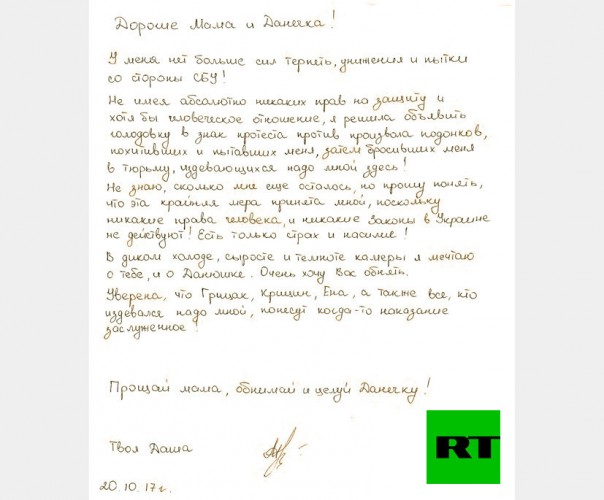 Дороше Мама и Данечка!
У меня нет больше сил терпеть, унижения и пытки
со стороны СБУ!
Не имея абсолютно никаких прав на защиту и
хотя бы человеческое отношение, я решила объявить
голодовку в знак протеста против произвола подонков,
похитивших и пытавших меня, затем бросивших меня
в тюрьму, издевающихся надо мной здесь!
Не знаю, сколько мне еще осталось, но прошу понять,
что эта крайняя мера принята мной, поскольку
никакие права человека, и никакие Законы в Украине
не действуют! Есть только страх и насилие!
В диком холоде, сырости и темноте камеры я мечтаю
о тебе, и о Данюшке. Очень хочу Вас обнять.
Уверена, что Грицак, Крищин, Ена, а также все, кто
издевался надо мной, понесут когда-то наказание
заслуженное!
Прощай мама, обнимай и целуй Данечку!
Твоя Даша
20.10.17г.
RT